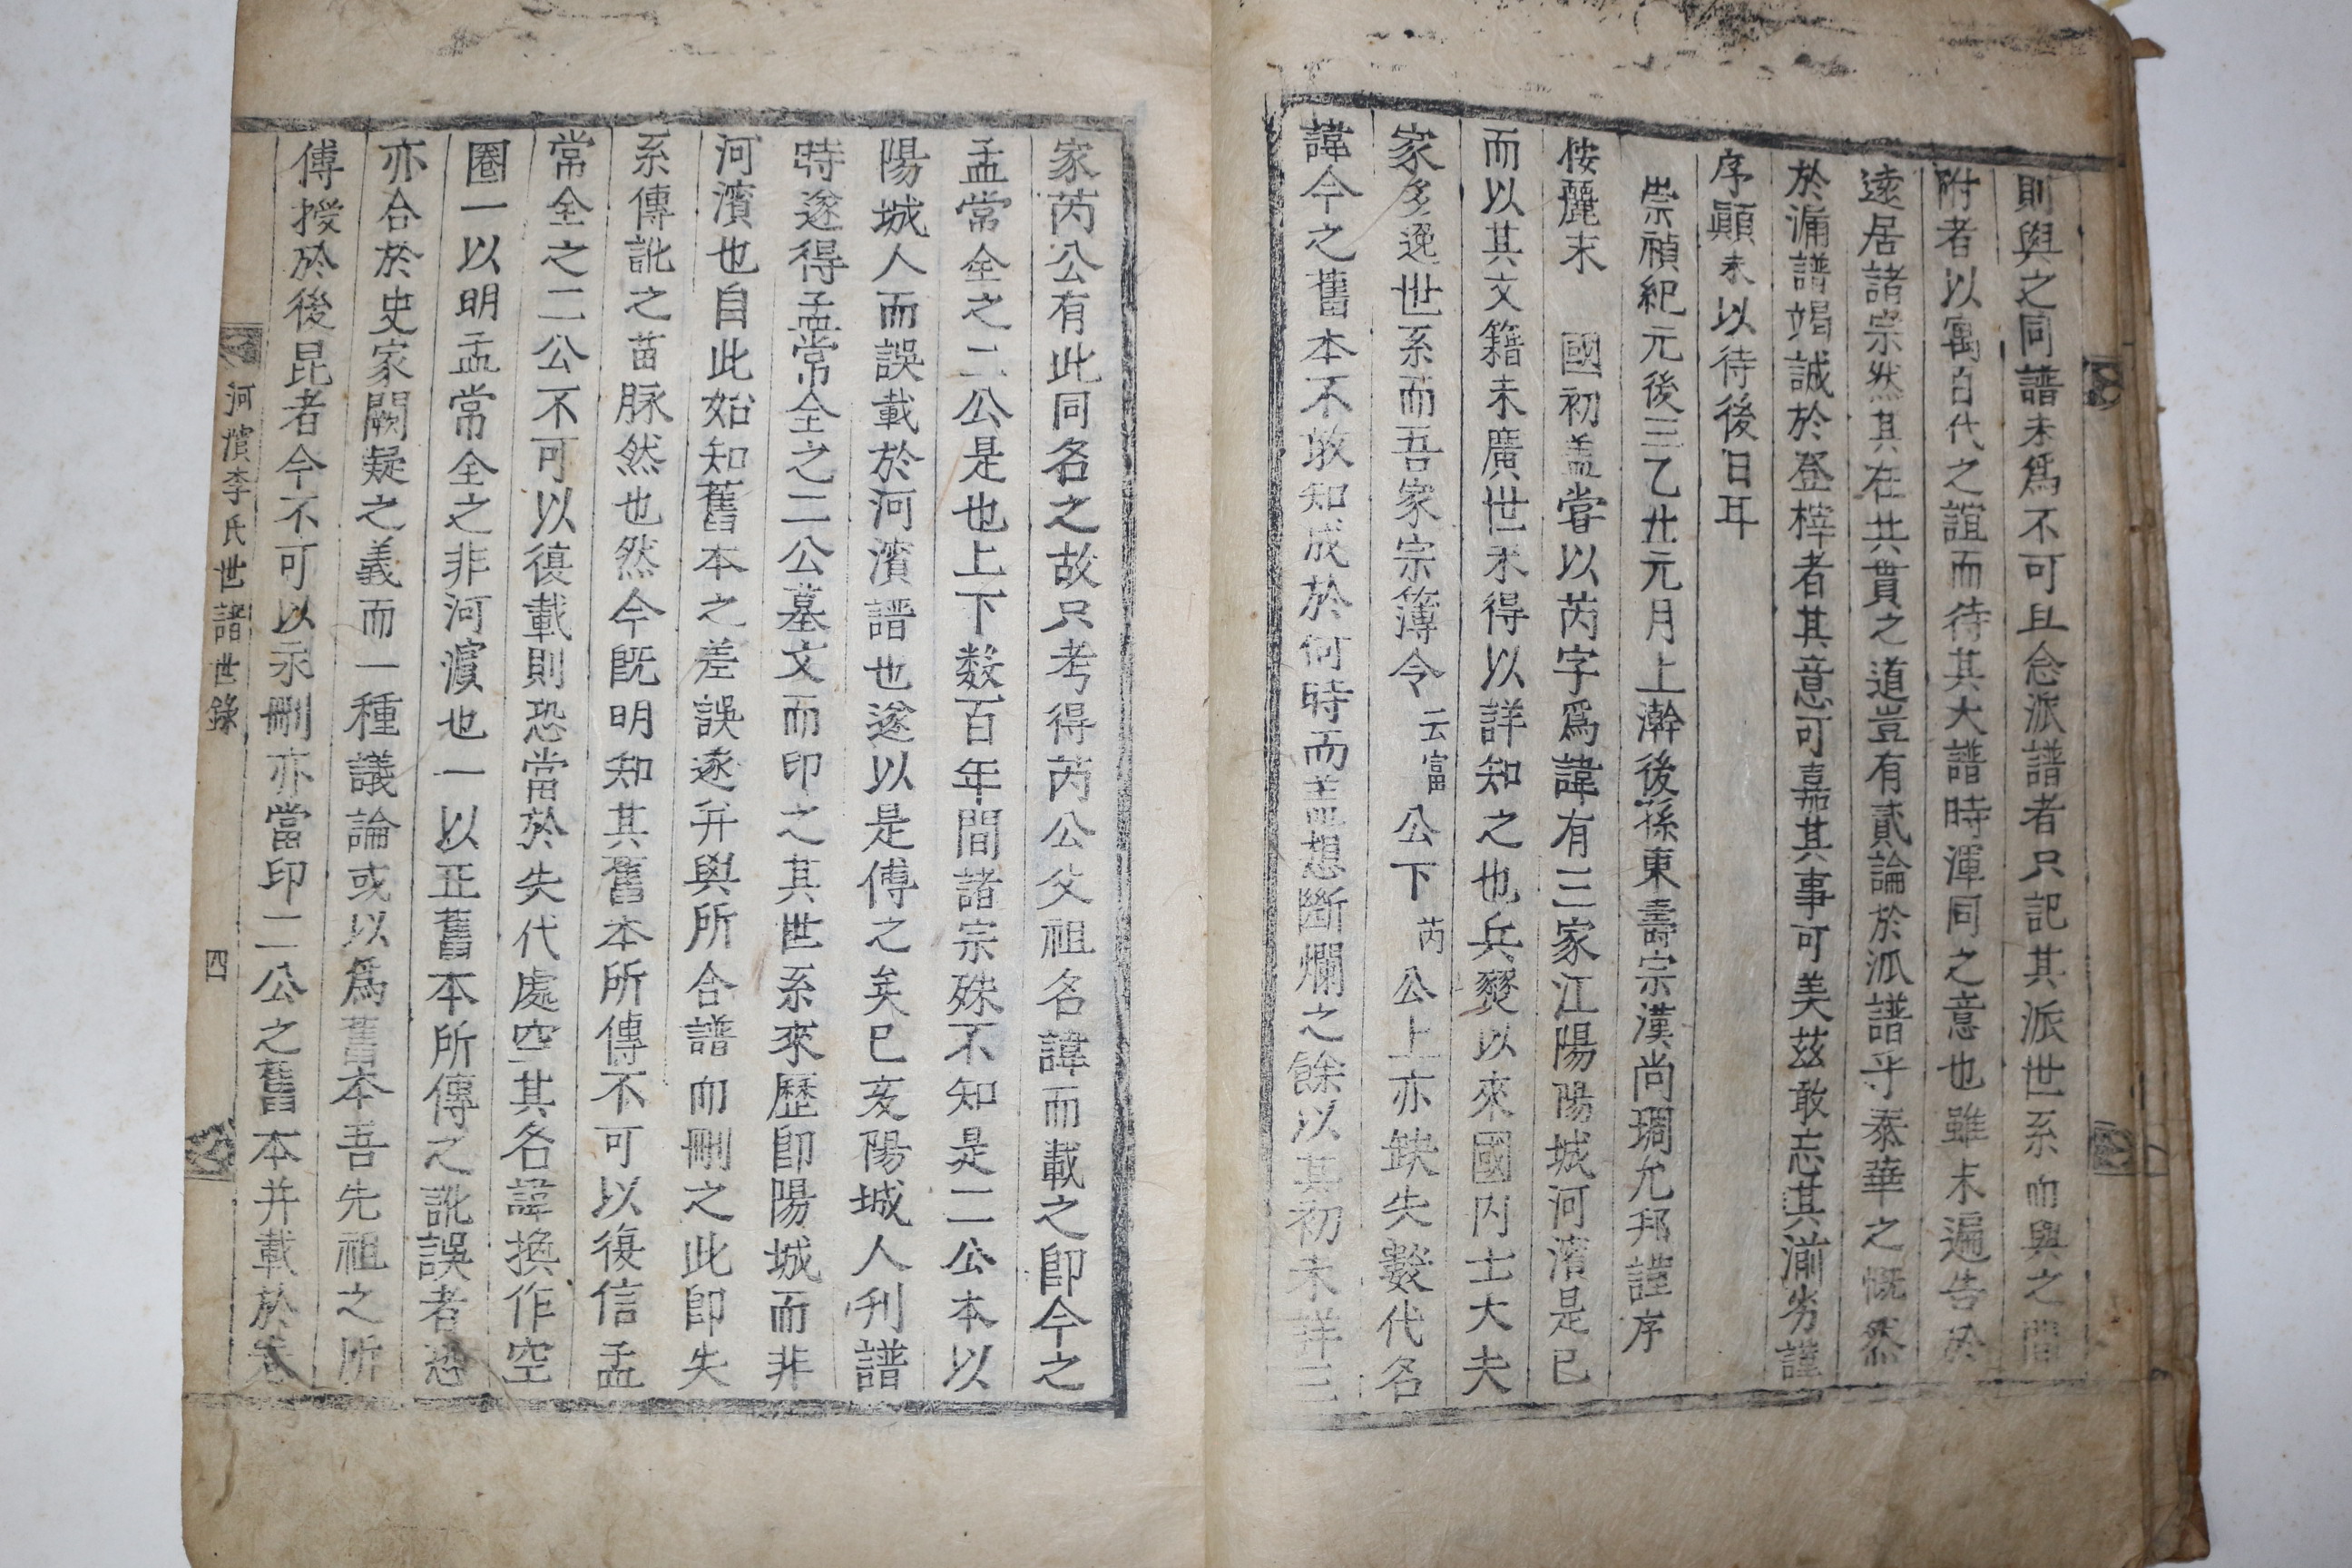 則與之同譜未爲不可且念派譜者只記其派世系而與之間
附者以寓百代之誼而待其大譜時渾同之意也雖未遍告於
遠居諸宗然其在共貫之道豈有貳論於派譜乎泰華之慨然
於漏譜竭誠於登梓者其意可嘉其事可美玆敢忘其湔劣謹
序顚末以待後日耳
崇禎紀元後三乙廿元月上澣後孫東壽宗漢尚琱允邦謹序
按麗末 國初盖甞以芮字爲諱有三家江陽陽城河濱是已
而以其文籍未廣世未得以詳知之也兵燹以來國內士大夫
家多逸世系而吾家宗簿令云富公下芮公上亦缺失數代名
諱今之舊本不敢知成於何時而盖想斷爛之餘以其初未詳三
家芮公有此同名之故只考得芮公父祖名諱而載之卽今之
孟常全之二公是也上下数百年間諸宗殊不知是二公本以
陽城人而誤載於河濱譜也遂以是傳之矣已亥陽城人刋譜
時遂得孟常全之二公墓文而印之其世系來歷卽陽城而非
河濱也自此始知舊本之差誤遂幷與所合譜而刪之此卽失
系傳訛之苗脉然也然今旣明知其舊本所傳不可以復信孟
常全之二公不可以復載則恐當於失代處空其名諱換作空
圈一以明孟常全之非河濱也一以正舊本所傳之訛誤者恐
亦合於史家闕疑之義而一種議論或以爲舊本吾先祖之所
傳授於後昆者今不可以永刪亦當印二公之舊本并載於卷
河濱李氏世譜世錄 四